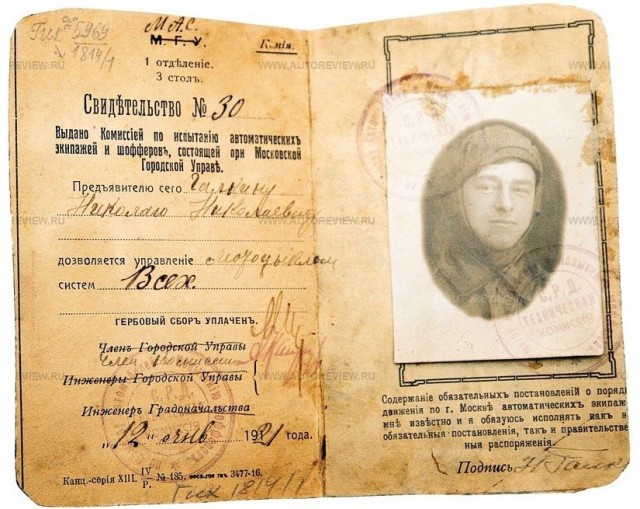 Гик 5969
1814/1
М.А.С.
М. Г. У.
Копія.
1 отдѣленіе.
3 столъ.
WWW.AUTOREVIEW.RU
Свидѣтельство № 30
Выдано Комиссіей по испытанію автоматическихъ
экипажей и шофферовъ, состоящей при Московской
Городской Управѣ.
Предъявителю сего Галкину
Николаю Николаевичу
дозволяется управленіе мотоциклом
системъ Всех.
ГЕРБОВЫЙ СБОРЪ УПЛАЧЕНЪ.
Членъ Городской Управы
Член
Инженеры Городской Управы
Инженеръ Градоначальства
"12" янв 1921 года.
Канц.-серія XIII. IV/Р. № 185. 3477-16.
Гик 1814/1
С.Р.Д.
ТЕХНИЧЕСКАЯ
Содержаніе обязательныхъ постановленій о порядкѣ
движенія по г. Москвѣ автоматическихъ экипажей
мнѣ извѣстно и я обязуюсь исполнять какъ эти
обязательныя постановленія, такъ и правительственныя
распоряженія.
Подпись Н Галк